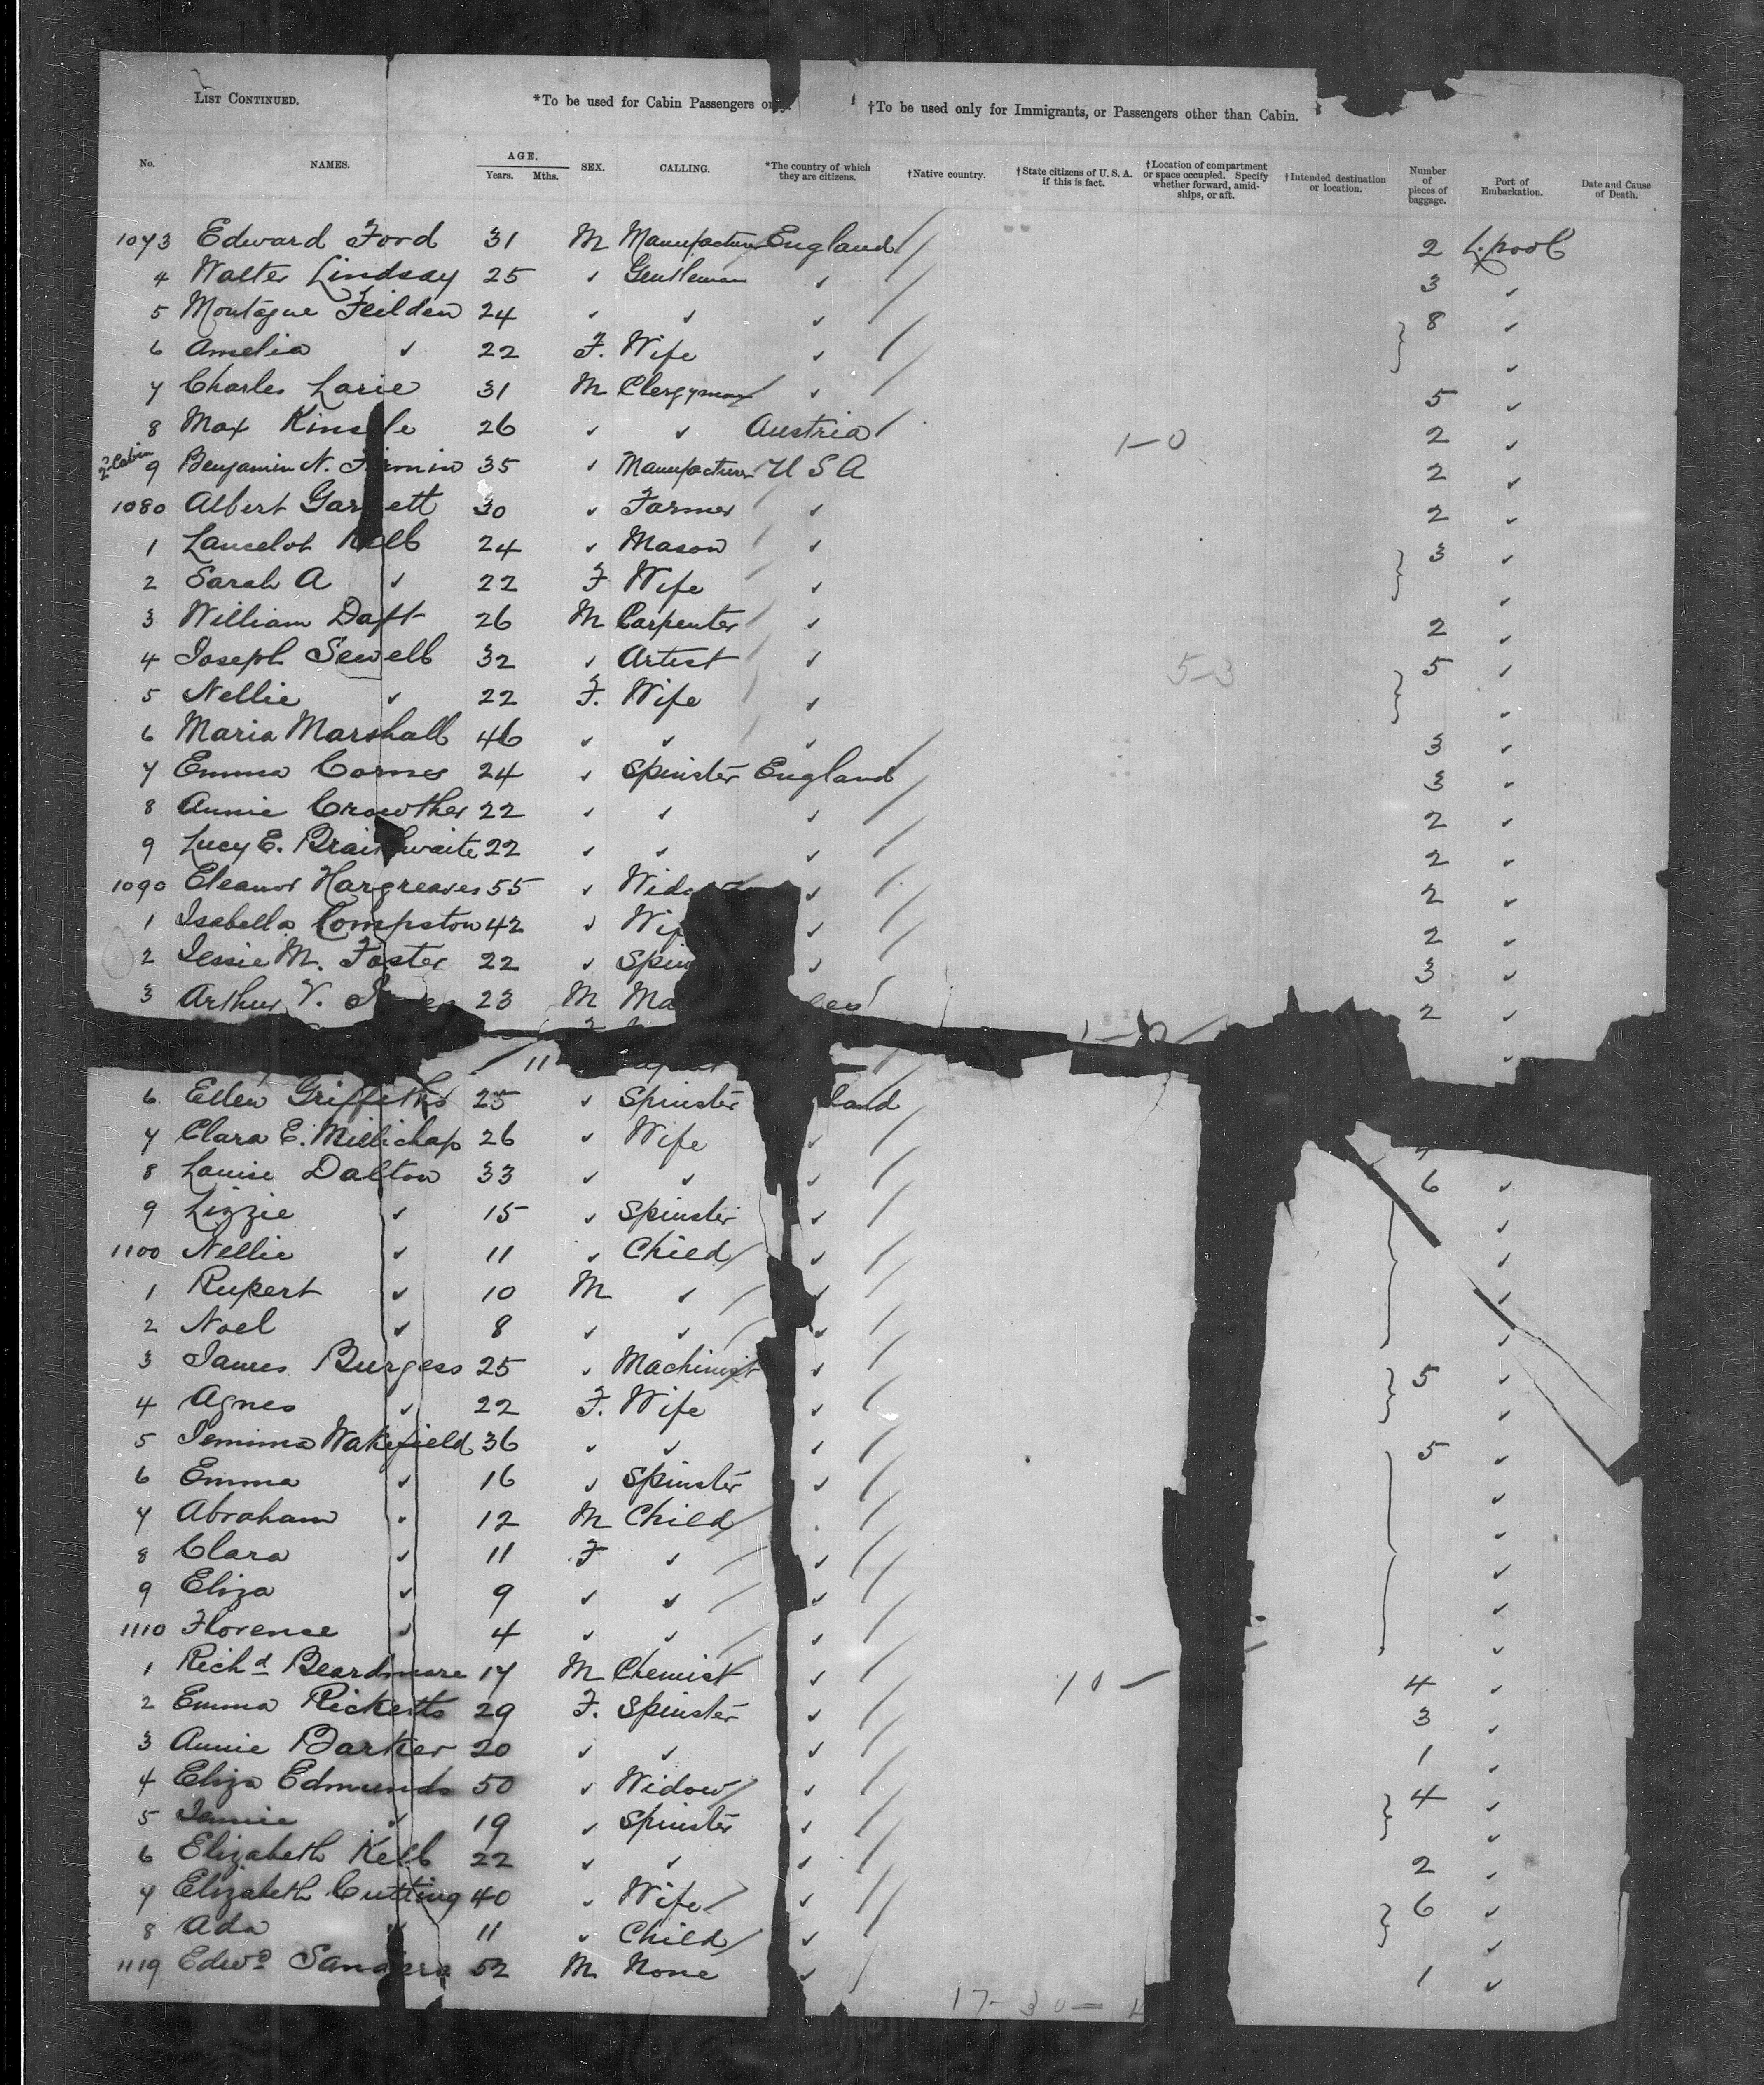 LIST CONTINUED. *To be used for Cabin Passengers only. †To be used only for Immigrants, or Passengers other than Cabin.
No. NAMES. AGE. Years. Mths. SEX. CALLING. *The country of which they are citizens. †Native country. †State citizens of U. S. A. if this is fact. †Location of compartment or space occupied. Specify whether forward, amidships, or aft. †Intended destination or location. Number of pieces of baggage. Port of Embarkation. Date and Cause of Death.
1073 Edward Ford 31 M Manufacturer England 2 L.pool
4 Walter Lindsay 25 ✓ Gentleman ✓ 3 ✓
5 Montague Feilden 24 ✓ ✓ ✓ 8 ✓
6 Amelia ✓ 22 F. Wife ✓ ✓
7 Charles Larie 31 M Clergyman ✓ 5 ✓
8 Max 26 ✓ ✓ Austria 1-0 2 ✓
2nd Cabin 9 Benjamin N. 35 ✓ Manufacturer U S A 2 ✓
1080 Albert 30 ✓ Farmer ✓ 2 ✓
1 Lancelot Kell 24 ✓ Mason ✓ 3 ✓
2 Sarah A ✓ 22 F Wife ✓ ✓
3 William Daft 26 M Carpenter ✓ 2 ✓
4 Joseph Sewell 32 ✓ Artist ✓ 5-3 5 ✓
5 Nellie ✓ 22 F. Wife ✓ ✓
6 Maria Marshall 46 ✓ ✓ ✓ 3 ✓
7 Emma Carnes 24 ✓ Spinster England 3 ✓
8 Annie Crowther 22 ✓ ✓ ✓ 2 ✓
9 Lucy E. Braithwaite 22 ✓ ✓ ✓ 2 ✓
1090 Eleanor Hargreaves 55 ✓ Widow ✓ 2 ✓
1 Isabella Compston 42 ✓ Wife ✓ 2 ✓
2 Jessie M. Foster 22 ✓ Spin ✓ 3 ✓
3 Arthur V. 23 M Ma les 2 ✓
11 ✓
6 Ellen Griffiths 25 ✓ Spinster land
7 Clara E. Millichap 26 ✓ Wife ✓
8 Louise Dalton 33 ✓ ✓ ✓ 6 ✓
9 Lizzie ✓ 15 ✓ Spinster ✓ ✓
1100 Nellie ✓ 11 ✓ Child ✓ ✓
1 Rupert ✓ 10 M ✓ ✓ ✓
2 Noel ✓ 8 ✓ ✓ ✓ ✓
3 James Burgess 25 ✓ Machinist ✓ 5 ✓
4 Agnes ✓ 22 F. Wife ✓ ✓
5 Jemima Wakefield 36 ✓ ✓ ✓ 5 ✓
6 Emma ✓ 16 ✓ Spinster ✓ ✓
7 Abraham ✓ 12 M Child ✓ ✓
8 Clara ✓ 11 F ✓ ✓ ✓
9 Eliza ✓ 9 ✓ ✓ ✓ ✓
1110 Florence ✓ 4 ✓ ✓ ✓ ✓
1 Richd Beardmore 17 M Chemist ✓ 10 - 4 ✓
2 Emma Ricketts 29 F. Spinster ✓ 3 ✓
3 Annie Barker 20 ✓ ✓ ✓ 1 ✓
4 Eliza Edmunds 50 ✓ Widow ✓ 4 ✓
5 Jennie ✓ 19 ✓ Spinster ✓ ✓
6 Elizabeth Kell 22 ✓ ✓ ✓ 2 ✓
7 Elizabeth Cutting 40 ✓ Wife ✓ 6 ✓
8 Ada ✓ 11 ✓ Child ✓ ✓
1119 Edwd Sanders 52 M None ✓ 1 ✓
17-30-